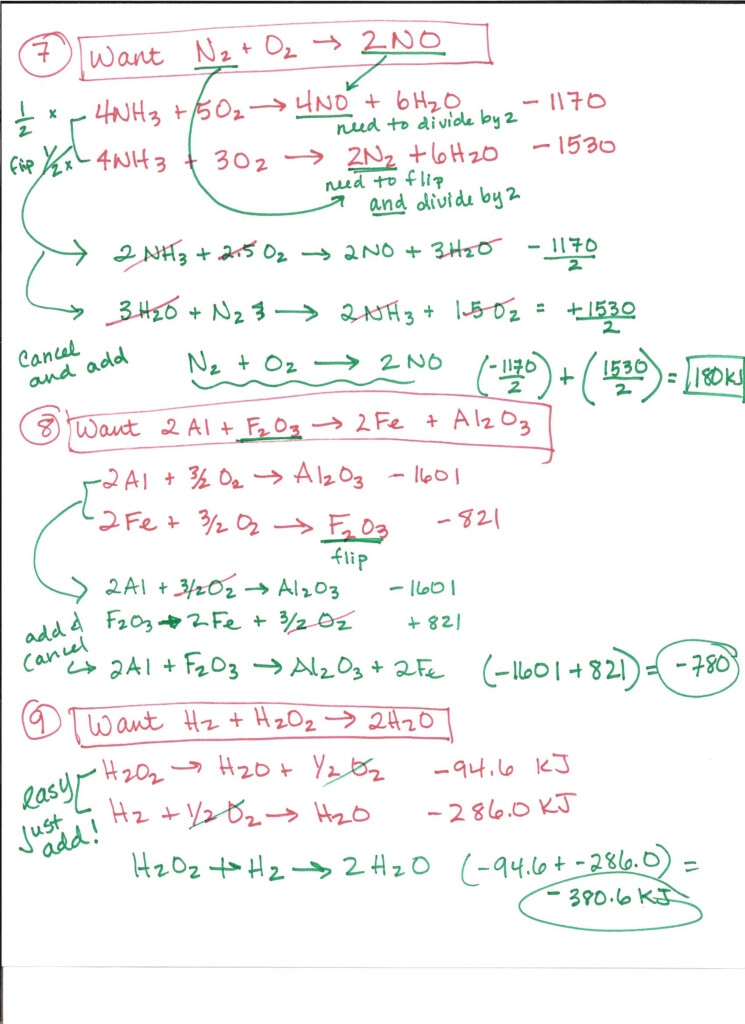 ⑦ Want N₂ + O₂ → 2NO
½ x 4NH₃ + 5O₂ → 4NO + 6H₂O -1170
need to divide by 2
flip ½ x 4NH₃ + 3O₂ → 2N₂ + 6H₂O -1530
need to flip
and divide by 2
2NH₃ + 2.5O₂ → 2NO + 3H₂O -1170/2
3H₂O + N₂ → 2NH₃ + 1.5O₂ = +1530/2
Cancel and add
N₂ + O₂ → 2NO (-1170/2) + (1530/2) = 180KJ
⑧ Want 2Al + F₂O₃ → 2Fe + Al₂O₃
2Al + 3/2 O₂ → Al₂O₃ -1601
2Fe + 3/2 O₂ → F₂O₃ -821
flip
2Al + 3/2O₂ → Al₂O₃ -1601
F₂O₃ → 2Fe + 3/2 O₂ +821
add & Cancel
↪ 2Al + F₂O₃ → Al₂O₃ + 2Fe (-1601+821) = -780
⑨ Want H₂ + H₂O₂ → 2H₂O
H₂O₂ → H₂O + ½O₂ -94.6 KJ
easy
H₂ + ½O₂ → H₂O -286.0 KJ
just add!
H₂O₂ + H₂ → 2H₂O (-94.6 + -286.0) =
-380.6 KJ